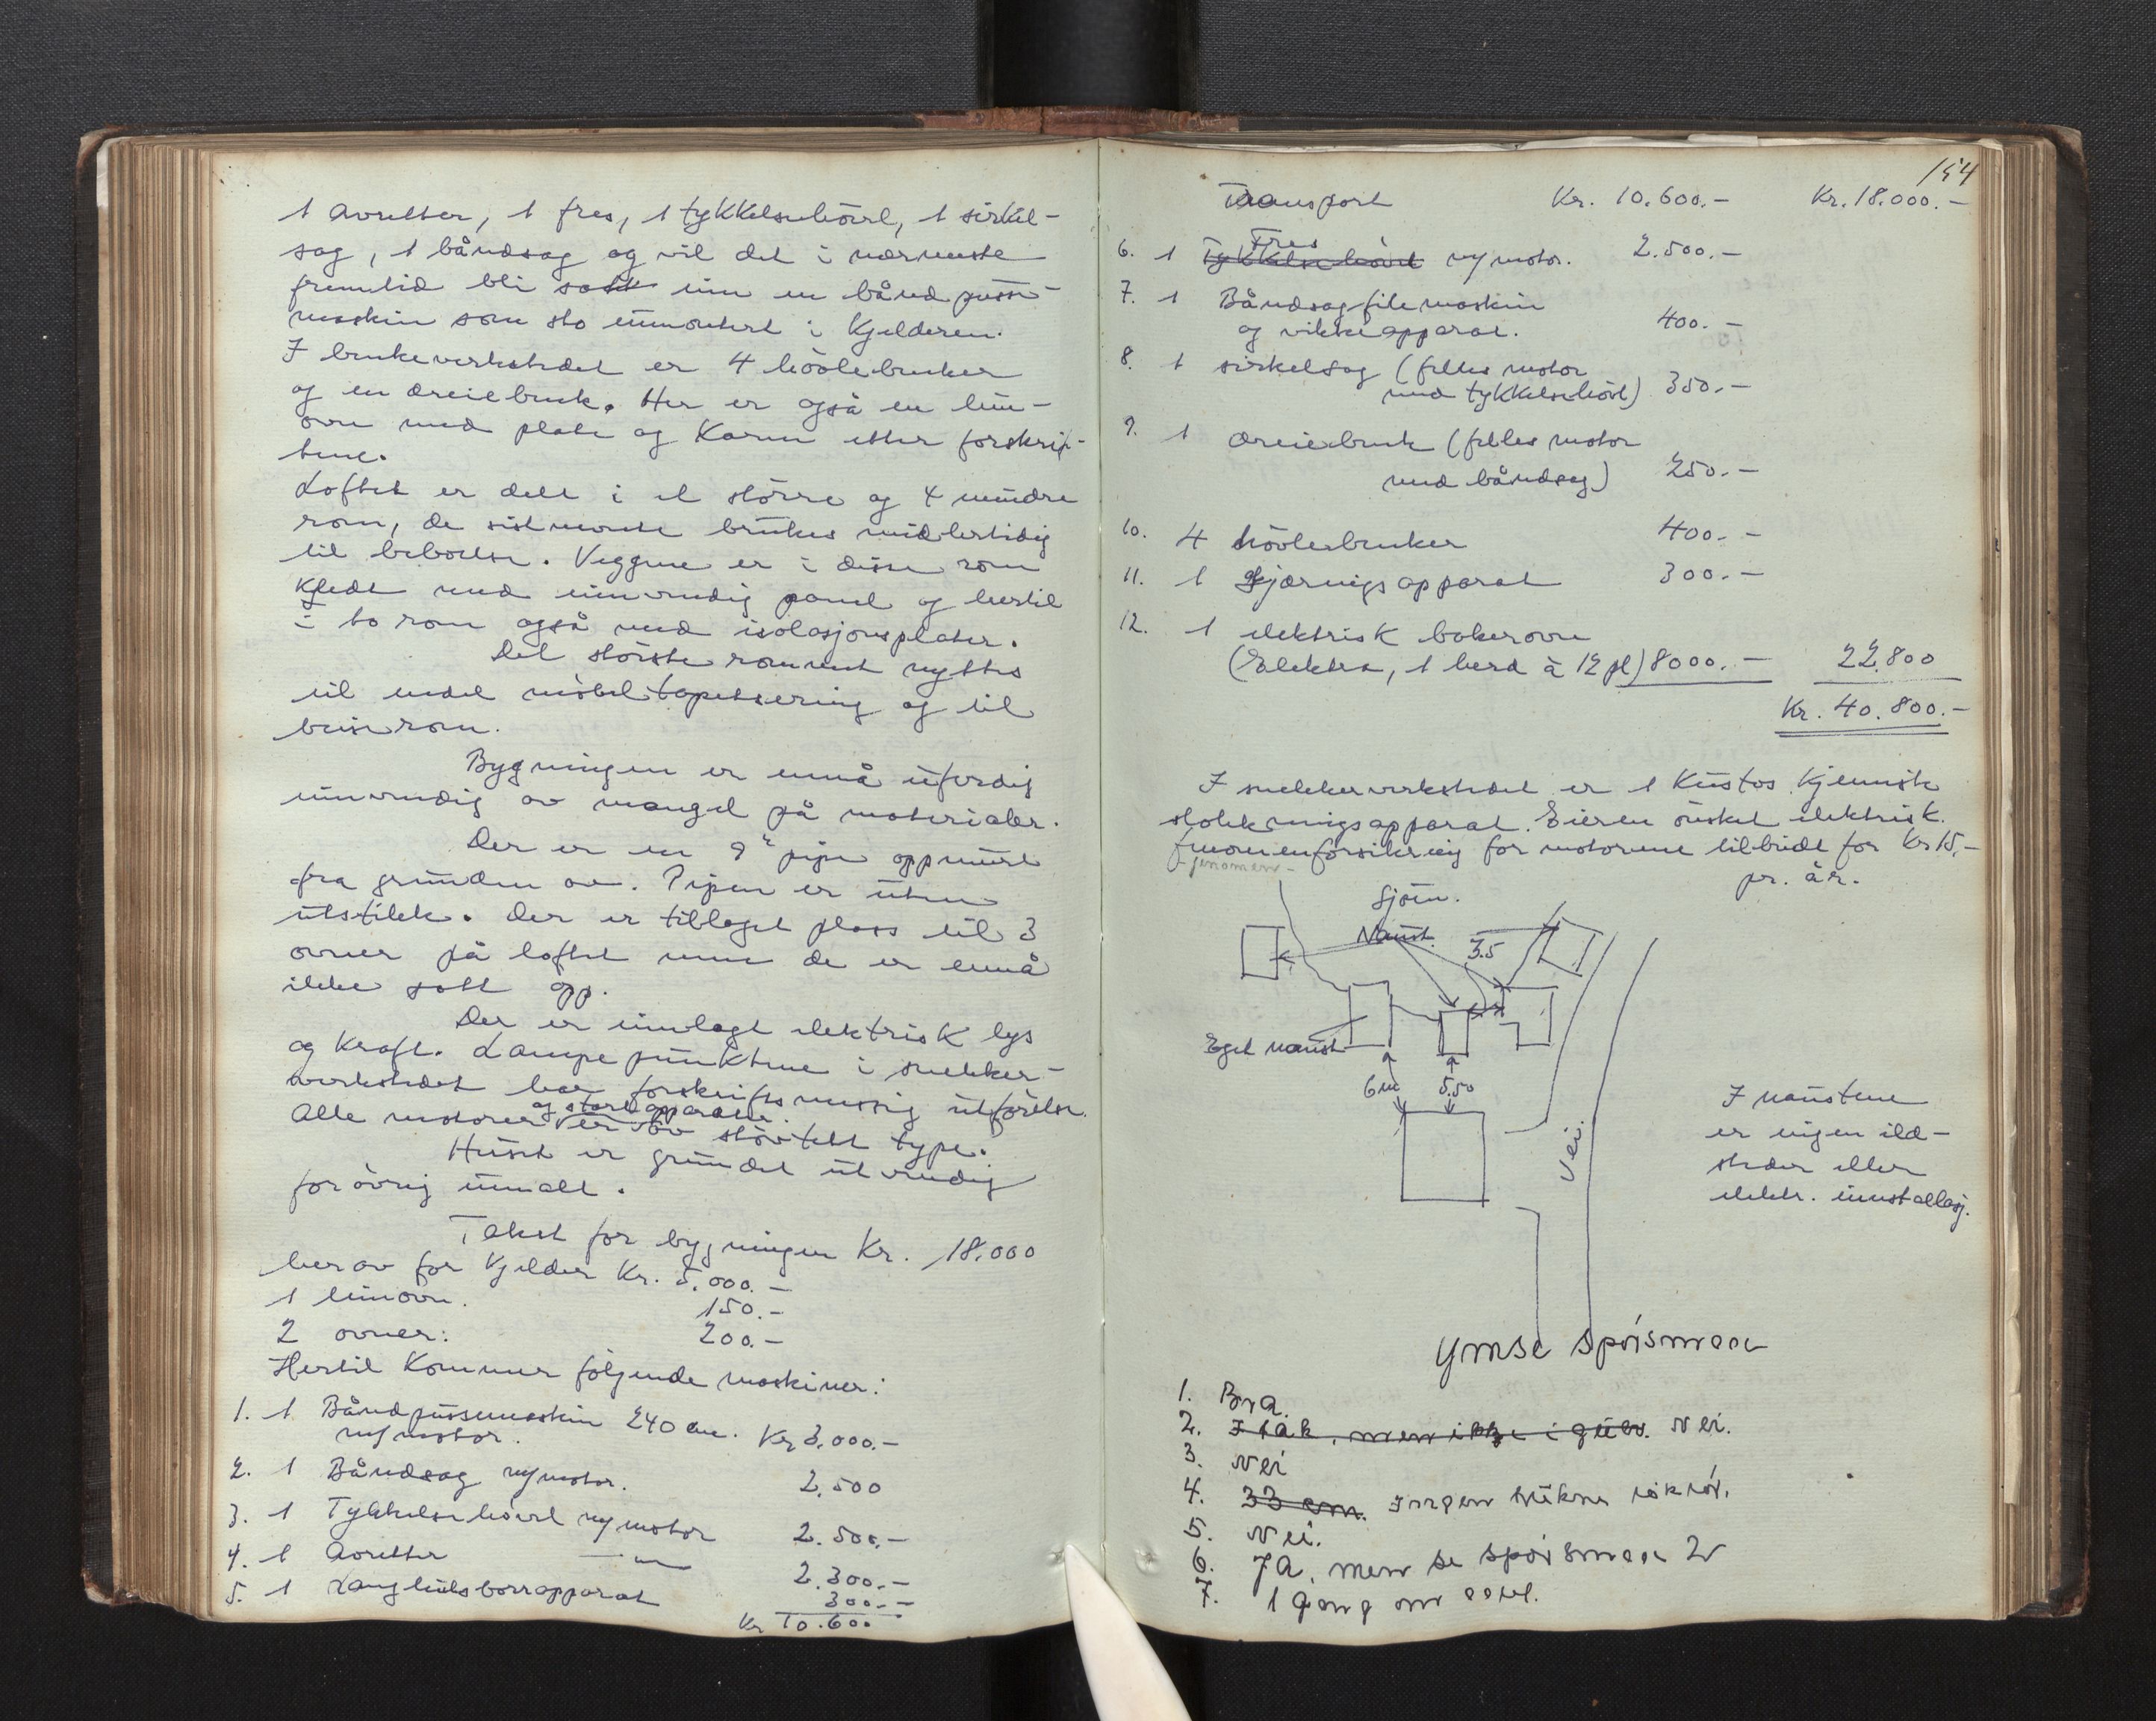 1 avretter, 1 fres, 1 tykkelsehövl, 1 sirkel-
sag, 1 båndsag og vil det i nærmeste
fremtid bli satt inn en båndpusse-
maskin som sto innmontert i kjelderen.
I benkeverkstedet er 4 hövlebenker
og en dreiebenk. Her er også en lim-
ovn med plate og karm etter forskrif-
tene.
Loftet er delt i et större og 4 mindre
rom, de sistnevnte brukes midlertidig
til beboelse. Veggene er i disse rom
kledt med innvendig panel og hertil
i to rom også med isolasjonsplater.
Det störste rommet nyttes
til endel möbeltapetsering og til
beiserom.
Bygningen er ennå uferdig
innvendig av mangel på materialer.
Der er en 9" pipe oppmurt
fra grunden av. Pipen er uten
utstikk. Der er tillaget plass til 3
ovner på loftet men de er ennå
ikke satt opp.
Der er innlagt elektrisk lys
og kraft. Lampepunktene i snekker-
verkstedet har forskriftsmessig utförelse.
og startapparater
Alle motorer er av stövtett type.
Huset er grundet utvendig
forövrig umalt.
Takst for bygningen Kr. 18.000
herav for kjelder Kr. 5.000.-
1 limovn. 150.-
2 ovner: 200.-
Hertil kommer fölgende maskiner:
1. 1 Båndpussemaskin 240 cm. Kr 3.000.-
m/motor.
2. 1 Båndsag m/motor. 2.500
3. 1 Tykkelsehövl m/motor 2.500.-
4. 1 Avretter — " — 2.300.-
5. 1 Langhulsborrapparat 300.-
Kr 10.600
154
Transport Kr. 10.600.- Kr. 18.000.-
Fres
6. 1 Tykkelsehövel m/motor. 2.500.-
7. 1 Båndsagfilemaskin
og vikkeapparat. 400.-
8. 1 sirkelsag (felles motor
med tykkelsehövl) 350.-
9. 1 dreiebenk (felles motor
med båndsag) 250.-
10. 4 hövlebenker 400.-
11. 1 gjæringsapparat 300.-
12. 1 elektrisk bakerovn
(Elektra, 1 herd à 12 pl) 8000.- 22.800
Kr. 40.800.-
I snekkerverkstedet er 1 Kustos kjemisk
slokkningsapparat. Eieren önsket elektrisk.
fenomenforsikring for motorene tilbudt for Kr 15.-
fenomen-
pr. år.
Sjöen.
Naust. 35
Eget naust
6 m 5.50
Vei.
I naustene
er ingen ild-
steder eller
elektr. innstallasj.
Ymse spörsmaal
1. Bra.
2. I tak, men ikke i gulv. Nei.
3. Nei
4. 33 cm. Ingen rökrör.
5. Nei.
6. Ja, men se spörsmaal 2
7. 1 gang om